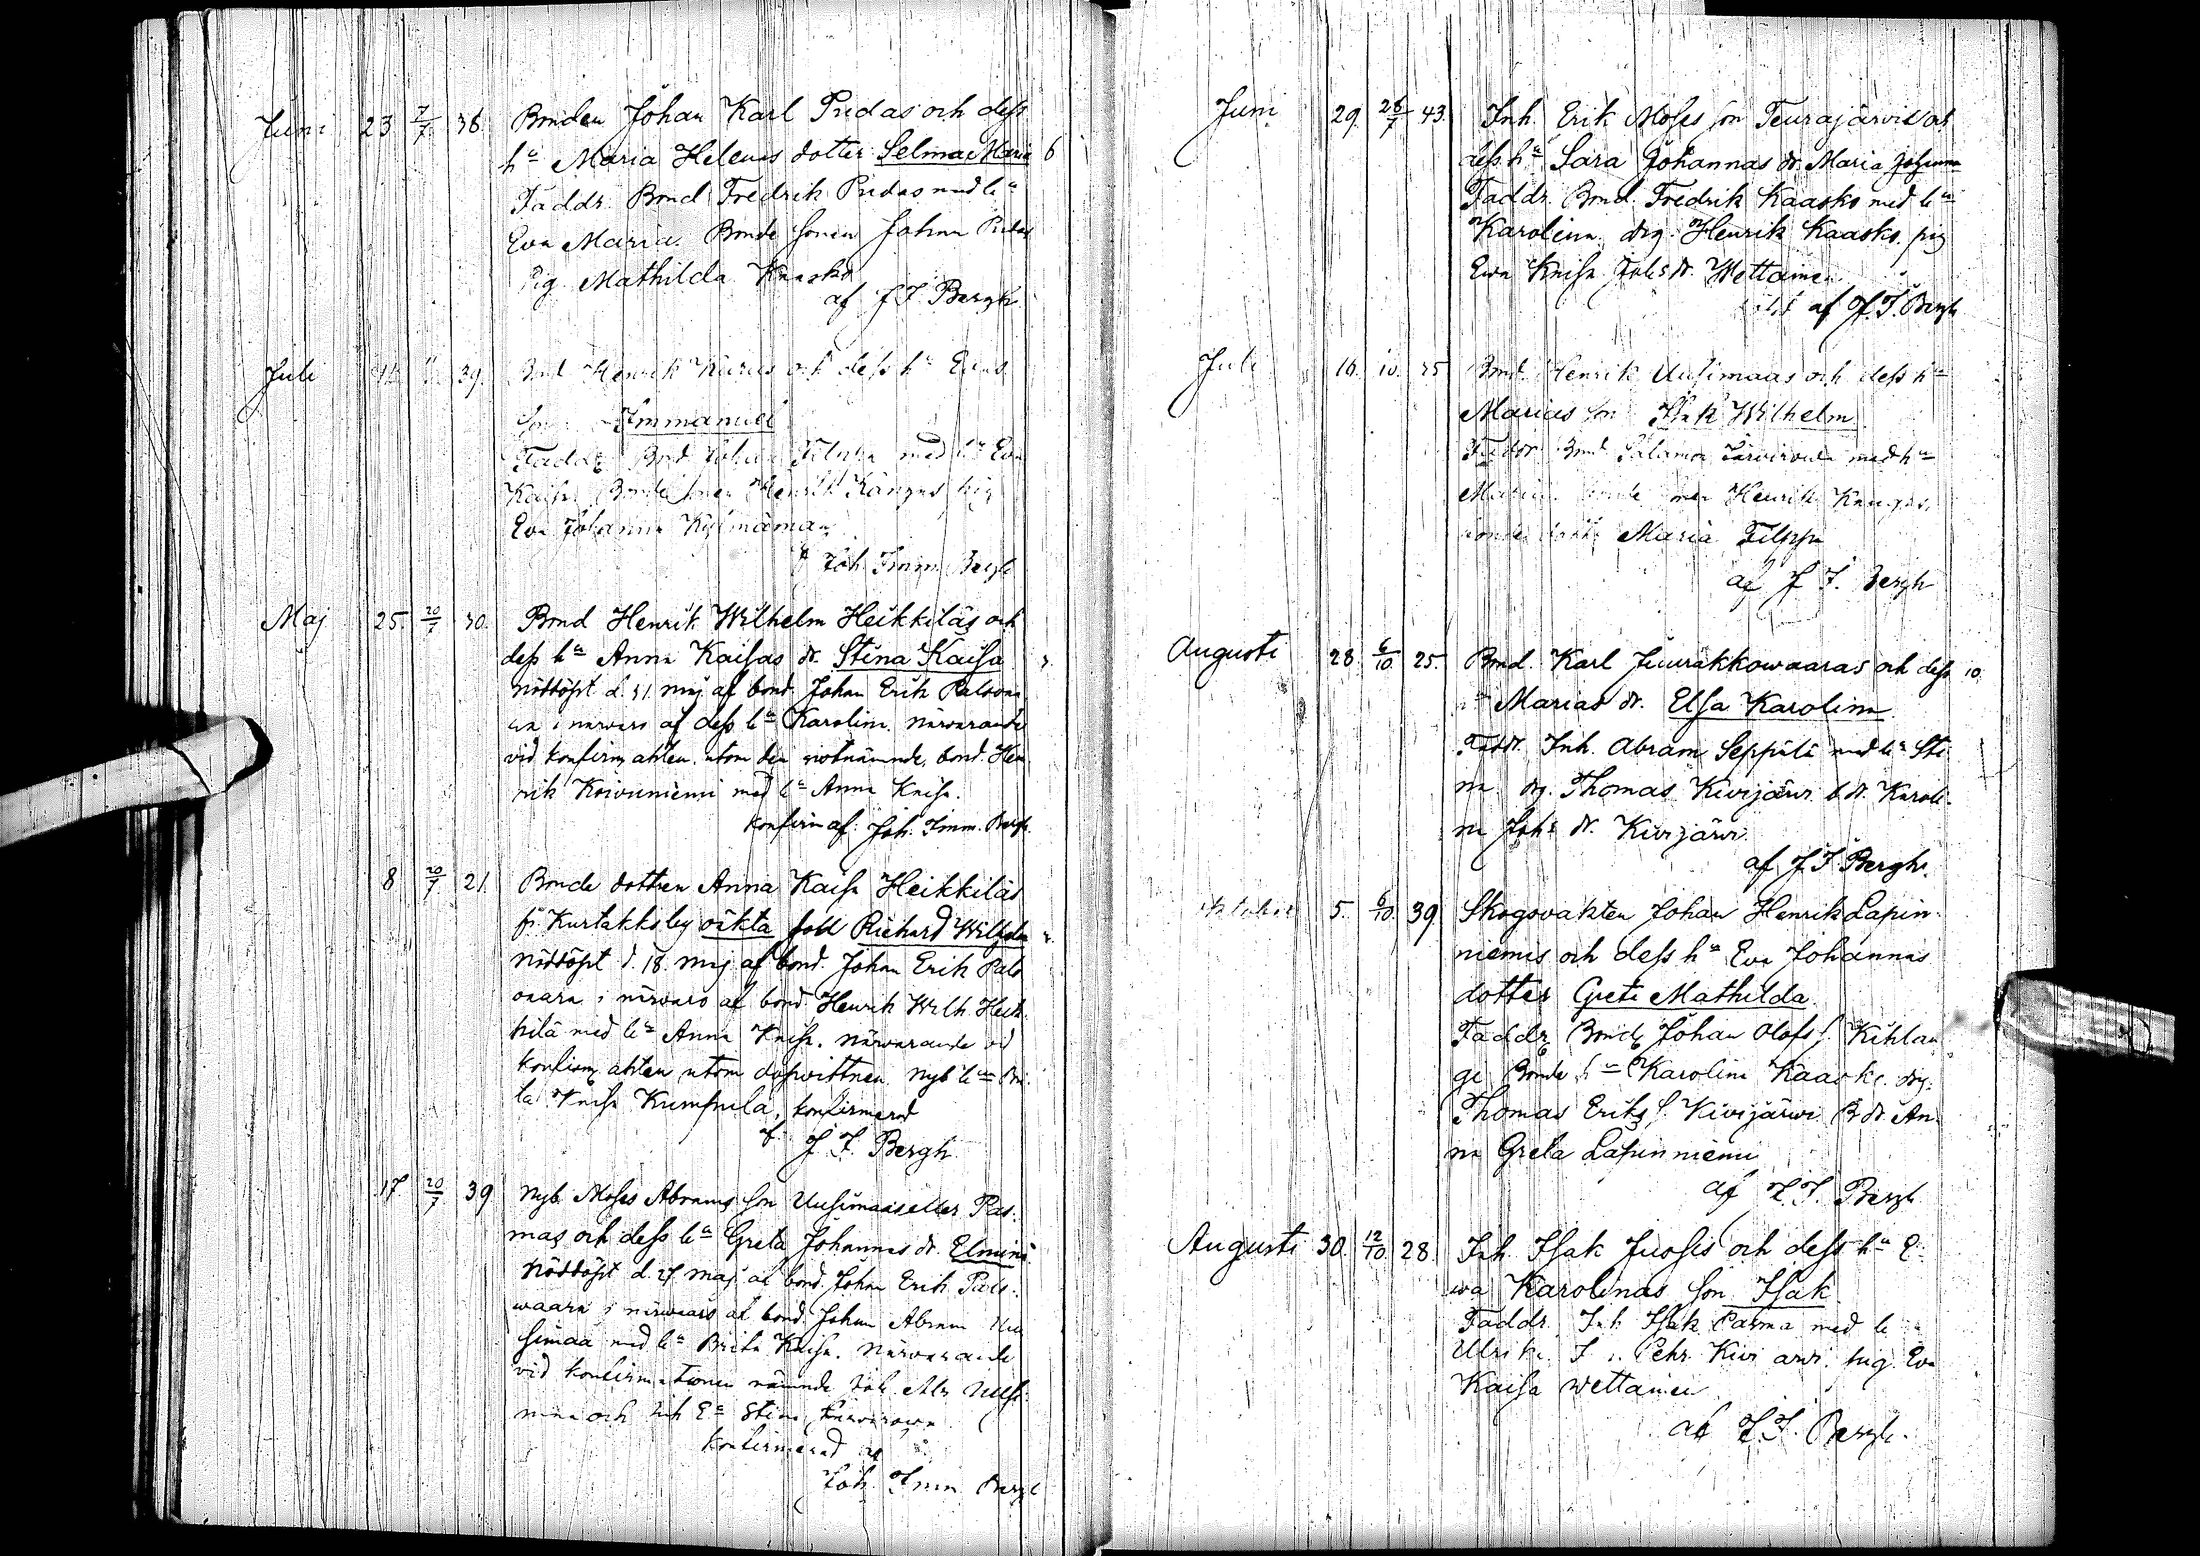 Juni 23 7/7 36. Bonden Johan Karl Pudas och dess
hu Maria Helenas dotter Selma Maria 6
Faddr. Bond Fredrik Pudas med hu
Eva Maria. Bonde sonen Johan Pudas
Pig. Mathilda Kaasko
af J I Bergh
Juli 39. Bond Henrik och dess hu Evas
son Immanuel
Faddr. Bond Johan Filppa med hu Eva
Kaisa. Bondesonen Henrik Kangas pig
Eva Johanna Kylmämaa
Joh. Imm. Bergh
Maj 25. 20/7 30. Bond Henrik Wilhelm Heikkiläs och
dess hu Anna Kaisas dr. Stina Kaisa
nöddöpt d. 31 maj af bond. Johan Erik Palovaa
ra i närvaro af dess hu Karolina. närvarande
vid konfirm. akten, utom den , bond. Hen
rik Koivuniemi med hu Anna Kaisa.
Konfirm af. Joh. Imm. Bergh.
8 20/7 21. Bonde dottren Anna Kaisa Heikkiläs
fr Kurtakko by oäkta född Richard Wilhelm
nöddöpt d. 18 maj af bond. Johan Erik Palo
vaara i närvaro af bond. Henrik Wilh. Heik
kilä med hu Anna Kaisa. närvarande vid
konfirm. akten utom dopvittnen nyb hu Bri
ta Kaisa Kumpula, konfirmerad
af J I Bergh
17 20/7 39 Nyb. Moses Abrams son Uusimaas eller Pas
mas och dess hu Greta Johannas dr. Elmina
Nöddöpt d. 27 maj af bond. Johan Erik Palo
waara i närwaro af bond. Johan Abram Uu
simaa med hu Brita Kaisa. närvarande
vid konfirmationen nämnde
och Stina
konfirmerad af
Joh. Imm Bergh
Juni 29. 26/7 43. Inh. Erik Moses son Teurajärvis och
dess hu Sara Johannas dr. Maria Johanna
Faddr. Bond. Fredrik Kaasko med hu
Karolina. drg. Henrik Kaasko. pig
Ewa Kaisa Johs dr. Wettainen
af J. I. Bergh
Juli 16. 10. Bond. Henrik Uusimaas och dess hu
Marias son Isak Wilhelm
Faddr. Bond Salamon Järvirova med hu
Maria. Henrik Kangas,
Maria Filppa
af J I. Bergh
Augusti 28 6/10 25. Bond. Karl Juurakkowaaras och dess 10.
hu Marias dr. Elsa Karolina
Faddr. Inh. Abram Seppälä med hu Sti
na drg. Thomas Kivijärvi b. dr. Karoli
na Johs dr. Kivijärvi.
af J I Bergh.
Oktober 5. 6/10. 39. Skogsvakten Johan Henrik Lapin
niemis och dess hu Eva Johannas
dotter Greta Mathilda
Faddr. Bond. Johan Olofs s. Kihlan
gi Bonde hu Karolina Kaasko. drg.
Thomas Eriks s. Kivijärwi B. dr. An
na Greta Lapinniemi
af J. I. Bergh
Augusti 30. 12/10 28. Inh. Isak Juosis och dess hu E
wa Karolinas son Isak
Faddr. Inh. Isak Pasma med hu
Ulrika. Pehr Kivijärvi. pig. Eva
Kaisa Wettainen
af J. I. Bergh.